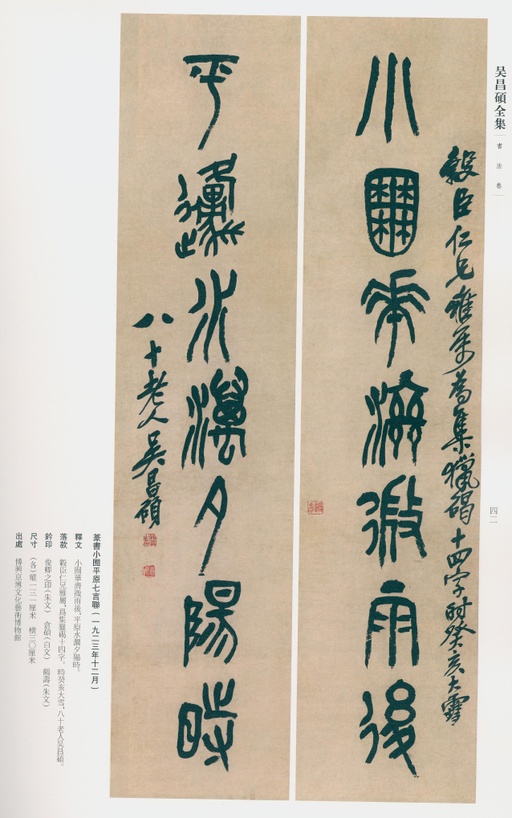 吴昌碩全集
書法卷
四二
縠臣仁兄雅屬為集獵碣十四字時癸亥大雪
小囿華濟微雨後
平邍水瀁夕陽時
八十老人吴昌碩
篆書小囿平原七言聯（一九二三年十二月）
釋文 小囿華濟微雨後，平原水瀁夕陽時。
落款 縠臣仁兄雅屬，爲集獵碣十四字。時癸亥大雪，八十老人吴昌碩。
鈐印 俊卿之印（朱文） 倉碩（白文） 蘭壽（朱文）
尺寸 （各）縱一三一厘米 橫三〇厘米
出處 博興京博文化藝術博物館